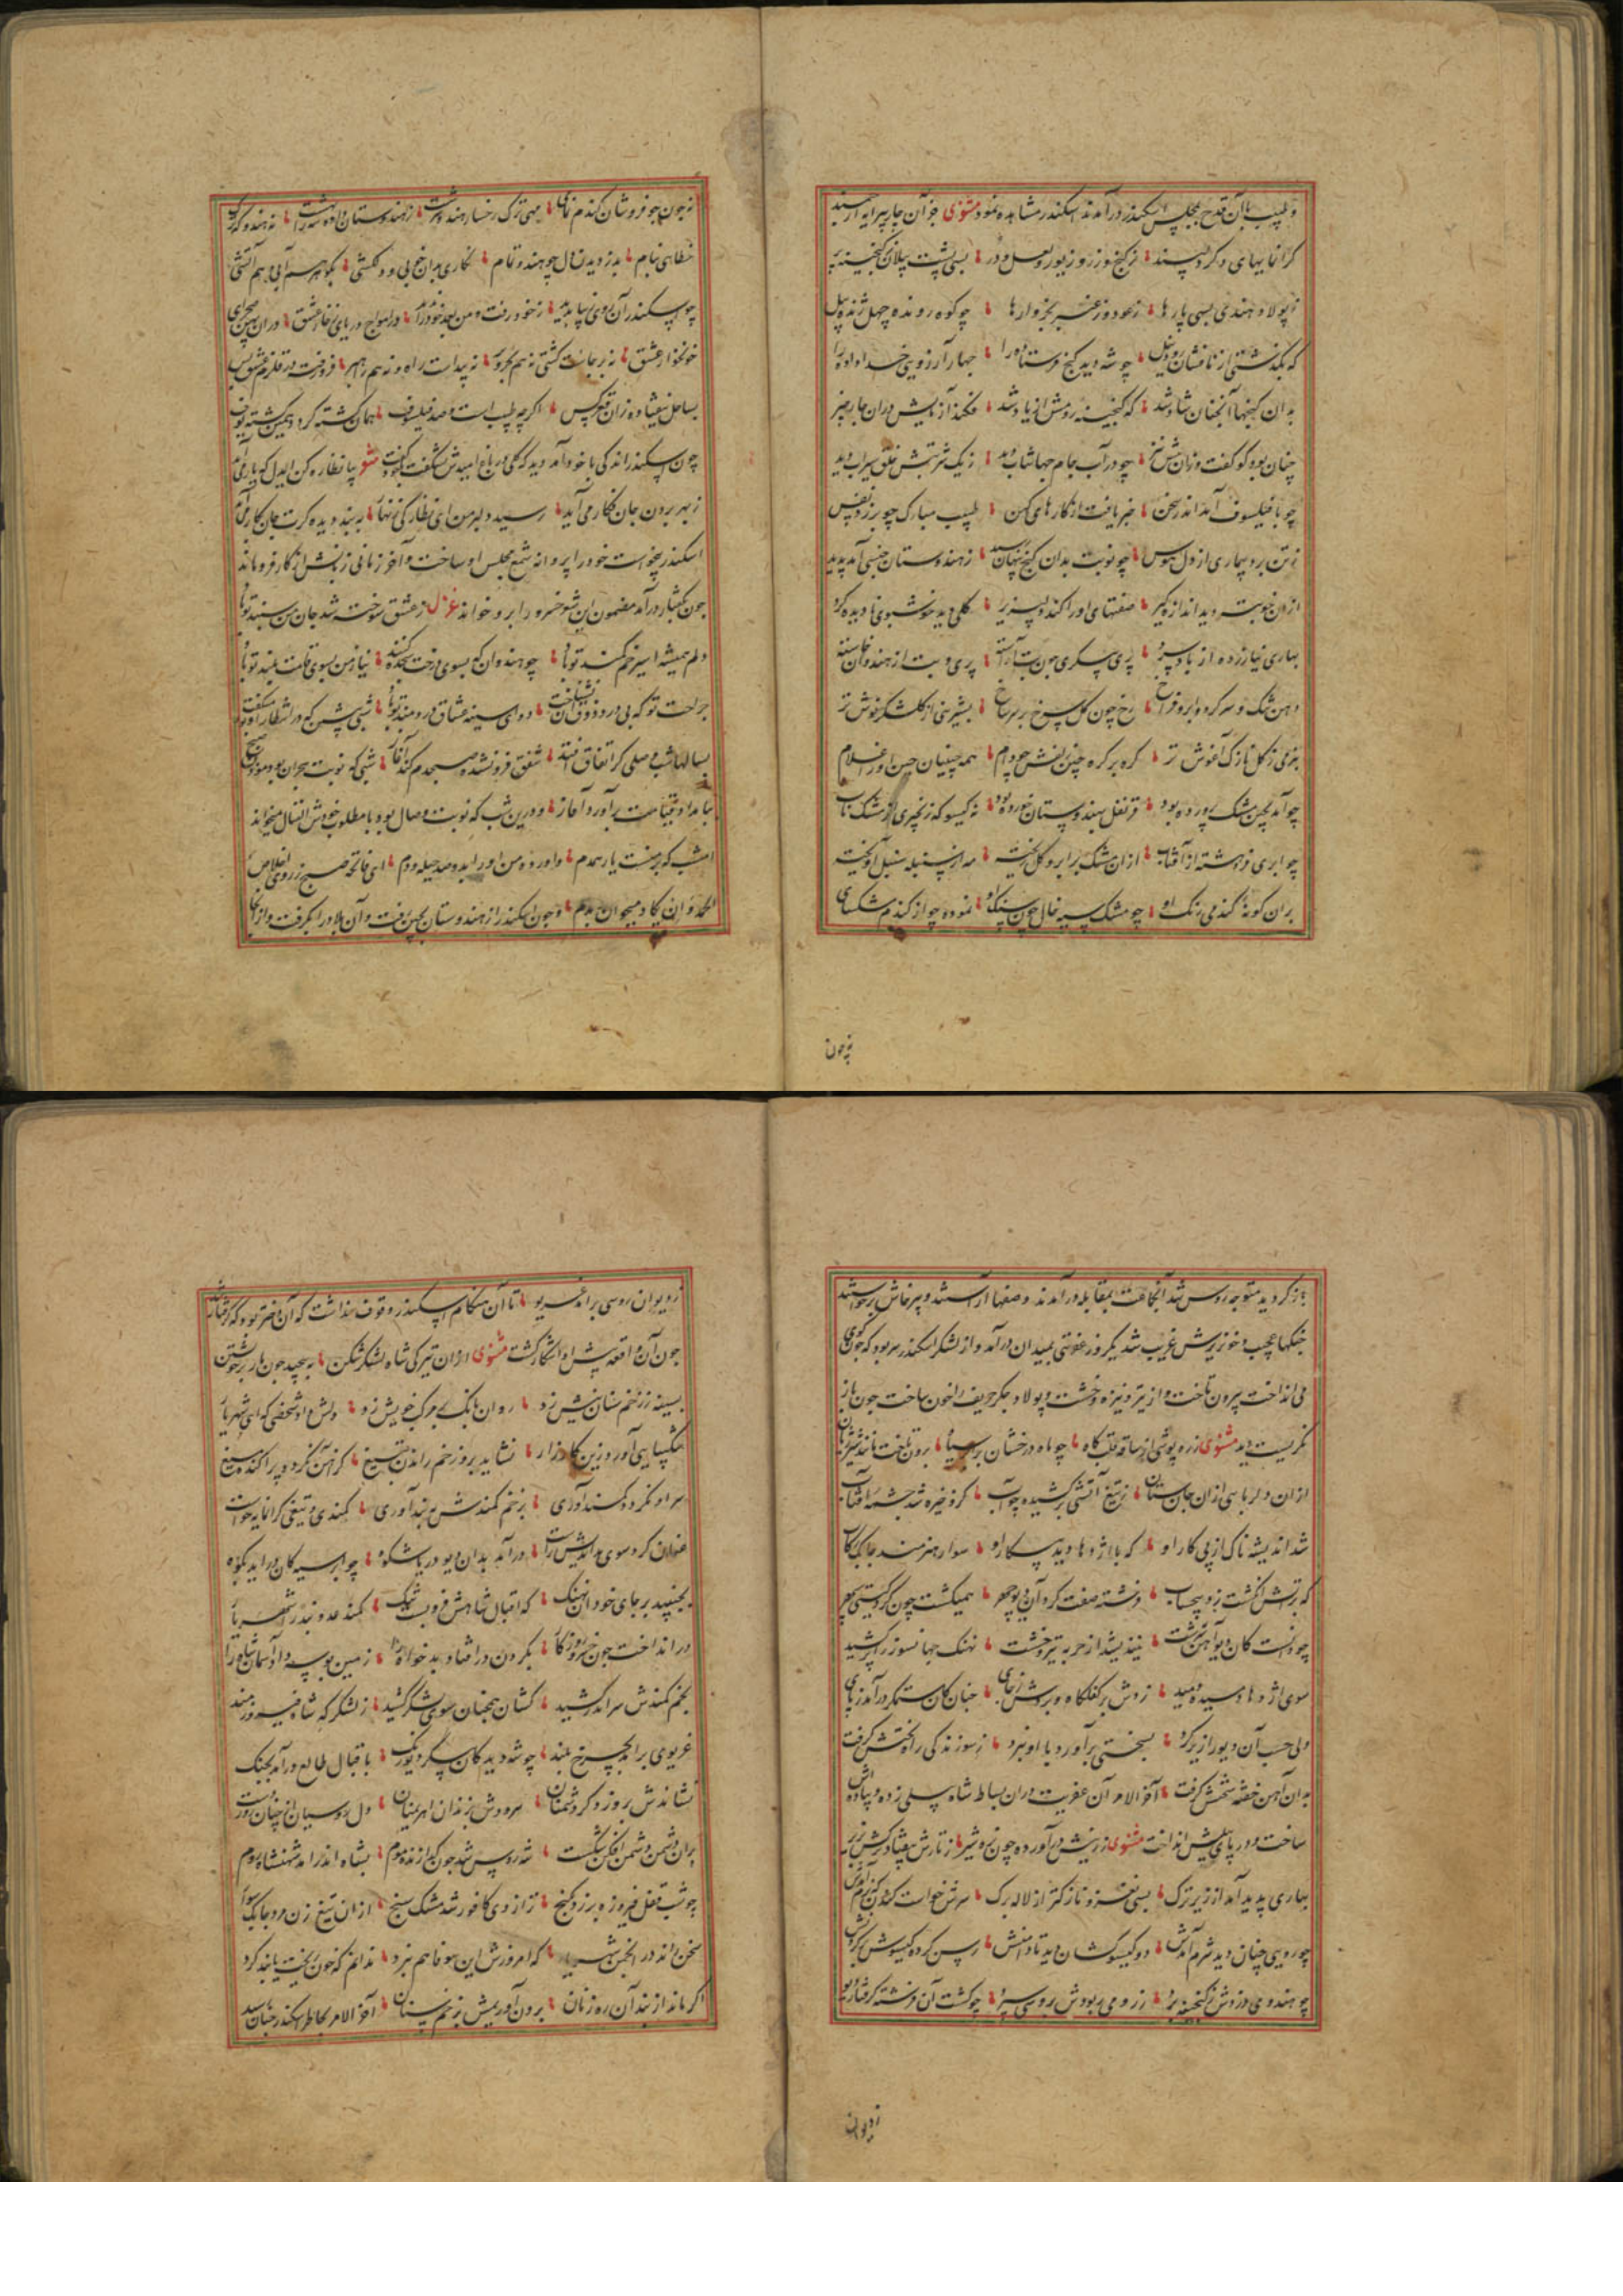 و طبیب با آن قدح بمجلس اسکندر درآمدند اسکندر مشاهده نمود مثنوی جز آن چار پیرایه ارجمند
گرانمایهای دگر دلپسند ؛ ز گنج و زر و زیور و لعل و در ؛ بسی پشت پیلان ز گنجینه پر
ز پولاد هندی بسی بارها ؛ ز عود و ز عنبر بخروارها ؛ چو کوه رونده چهل ژنده پیل
که نگذشتی از نافشان رود نیل ؛ چو شه دید گنج فرستاده را ؛ چهار آرزوی خداداده را
بدان گنجها آنچنان شاد شد ؛ که گنجینه رومش از یاد شد ؛ فکند آزمایش دران چار چیز
چنان بود کو گفت و زان بیش نیز ؛ چو در آب جام جهانتاب دید ؛ ز یک شربتش خلق سیراب دید
چو با فیلسوف آمد اندر سخن ؛ خبر یافت از کارهای کهن ؛ طبیب مبارک چو بر زد نفس
ز تن برد بیماری از دل هوس ؛ چو نوبت بدان گنج پنهان رسید ؛ ز هندوستان چینی آمد پدید
ازان خوبتر دید اندازه گیر ؛ صفتهای او را کند دلپذیر ؛ گلی دید خوشبوی نادیده گرد
بهاری نیازرده از باد سرد ؛ پری پیکری چون بت آراسته ؛ پری و بت از هندوان خاسته
دهن تنگ و سر گرد و ابرو فراخ ؛ رخ چون گل سرخ بر سر شاخ ؛ بشیرینی از گلشکر نوش تر
بنرمی ز گل نازک آغوش تر ؛ گره بر گره چین زلفش چو دام ؛ همه چینیان چین او را غلام
چو آمد بچین مشک پرورده بود ؛ قرنفل بهندوستان خورده بود ؛ نه گیسو که زنجیری از مشک ناب
چو ابری فروهشته از آفتاب ؛ ازان مشک بر ابر و گل ریخته ؛ مه از سنبله سنبل آویخته
بران گونه گندمی رنگ او ؛ چو مشک سیه خال جو سنگ او ؛ نموده جو از گندم مشکسای
نه چون
نه چون جو فروشان گندم نمای ؛ مهی ترک رخسار هندو سرشت ؛ ز هندوستان داده شه را بهشت ؛ نه هندو که ترک
خطایی بنام ؛ بدزدیدن دل چو هندو تمام ؛ نگاری بدان خوبی و دلکشی ؛ بگوهر هم آبی هم آتشی
چو اسکندر آن روی زیبا بدید ؛ ز خود رفت و من بعد خود را ؛ در امواج دریای زخار عشق ؛ دران بحر
خونخوار عشق ؛ نه برجاست کشتی نه هم ؛ نه پیداست راه و نه هم راهبر ؛ فرو رفته در قلزم عشق بس
بساحل نیفتاده زان قعر کس ؛ اگر چه طبیب است و صد فیلسوف ؛ همان گشته گرد و
چون اسکندر اندکی با خود آمد دید که گلی در باغ امیدش شگفت گفت مثنوی بیا نظاره کن ایدل که یار می آید
ز بهر بردن جان نگار می آید ؛ رسید دلبر من ای نظارگی تنها ؛ ببند دیده گرت جان بکار می آید
اسکندر میخواست خود را پروانه شمع مجلس او ساخت و آخر زمانی زبانش از کار فرو ماند
چون بگفتار درآمد مضمون این شعر خسرو را برو خواند غزل ز عشق سوخته شد جان من سپند تو باد
دلم همیشه اسیر خم کمند تو باد ؛ چو هندوان که بسوی درخت سجده کنند ؛ نیاز من بسوی قامت بلند تو باد
جراحت تو که بی درد ذوق آن نشناخت ؛ دوای سینه عشاق دردمند تو باد ؛ شبی پیش که در انتظار او
بسالها شب وصلی گر اتفاق افتد ؛ شفق فرو نشده صبحدم کند آغاز ؛ شبی که نوبت هجران بود
بامداد قیامت برآورد آغاز ؛ و درین شب که نوبت وصال بود با مطلوب خویش میخواند
امشب که برمنست یار همدم ؛ و آورده من او را بدو صد حیله و دم ؛ ای فاتحه صبح ز روی اخلاص
الحمد و ان یکاد میخوان بدم ؛ و چون اسکندر از هندوستان بچین رفت و آن بلاد را بگرفت و از آنجا
باز گردید متوجه روس شد آنجاعت بمقابله درآمدند و صفها آراستند و پرخاش برخواستند
جنگها عجیب و خونریزش غریب شد یکروز عفریتی بمیدان درآمد و از لشکر اسکندر سر بود که چون گوی
می انداخت بیرون تاخت و از تیر و نیزه و خشت و پولاد جگر حریف را خون ساخت چون باز
نگریست دید مثنوی زره پوشی از ساقه قلب گاه ؛ چو ماه درخشان برسپاه ؛ برون تاخت مانند شیر ژیان
ازان دلربایی ازان جان ستان ؛ ز تیغ آتشی برکشیده چو آب ؛ کزو خیره شد چشمه آفتاب
شد اندیشه ناک از پی کار او ؛ که با اژدها دید پیکار او ؛ سوار هنرمند چابک رکاب
که برآتش انگشت زد بیحساب ؛ فرشته صفت گرد آن دیو چهر ؛ همیگشت چون گرد گیتی سپهر
چو دانست کان دیو آهن سرشت ؛ نیندیشد از حربه تیر و خشت ؛ نهنگ جهانسوز را برکشید
سوی اژدها دیسه دمید ؛ زدش بر کفلگاه و بردش ز جای ؛ چنان کان ستمگر درآمد ز پای
ولی حسب آن دیو از زیر گرد ؛ بسختی برآورد با او نبرد ؛ ز سوزندگی راه تختش گرفت
بدان آهن خفته سختش گرفت ؛ آخر الامر آن عفریت دران بساط شاه سیلی زده و پیاده اش
ساخت و در پای پیلش انداخت مثنوی ز زینش درآورده چون تره شیر ؛ ز تارش بیفتاد ترکش بزیر
بهاری پدید آمد از زیر ترک ؛ بسی نغز و نازکتر از لاله برگ ؛ سرش خواست کندن که نرم آمدش
چو رویی چنان دید شرم آمدش ؛ دو گیسو کشان دید تا دامنش ؛ رسن کرده گیسوش بر گردنش
چو هندو می دزدش ز گنجینه برد ؛ ز رومی ربودش بروسی سپرد ؛ چو گشت آن فرشته گرفتار دیو
ز دیوان
ز دیوان روسی برآمد غریو ؛ تا آن هنگام اسکندر وقوف نداشت که آن دختر بود که گرفتار شد
چون آن واقعه پیش او آشکار گشت مثنوی ازان تیرگی شاه لشکرشکن ؛ بپیچید چون مار بر خویشتن
بسینه ز زخم سنان نیش زد ؛ روان بانگ بر مرگ خویش زد ؛ دلش داد شخصی که ای شهریار
شکیبایی آور درین کارزار ؛ نشاید بروز زخم راندن بتیغ ؛ کز آهن نگردد پراکنده میغ
سر او نگردد کمندآوری ؛ بزخم کمندش ببند آوری ؛ کمندی و تیغی گرانمایه خواست
عنان کرد سوی بداندیش راست ؛ درآمد بدان دیو دریا شکوه ؛ چو ابر سیه کان درآید بکوه
نجنبید بر جای خود آن نهنگ ؛ که اقبال شاهش فروبست چنگ ؛ کمند عدو بند را شهریار
در انداخت چون چنبر روزگار ؛ بگردن در افتاد بدخواه را ؛ زمین بوسه داد آسمان شاه را
بخم کمندش سر اندر کشید ؛ کشان همچنان سوی لشکر کشید ؛ ز لشکر که شاه فیروزمند
غریوی برآمد بچرخ بلند ؛ چو شه دید کان پیکر دیو رنگ ؛ باقبال طالع درآمد بچنگ
نشاندش بروز و گر دشمنان ؛ سپردش بزندان اهریمنان ؛ دل روسیان از چنان زور دست
بران دشمن دشمن افکن شکست ؛ شه روس شد چون گدازنده موم ؛ بشاه اندر آمد شهنشاه روم
چو شب قفل فیروزه بر زد بگنج ؛ ترازوی کافور شد مشک سنج ؛ ازان تیغ زن مرد چابک سوار
سخن راند در انجمن شهریار ؛ که امروزش این سوفا هم نبرد ؛ ندانم که خون ریخت یا بند کرد
اگر ماند از بند آن ره زنان ؛ برون آوریمش بزخم سنان ؛ آخر الامر بخاطر اسکندر چنان رسید